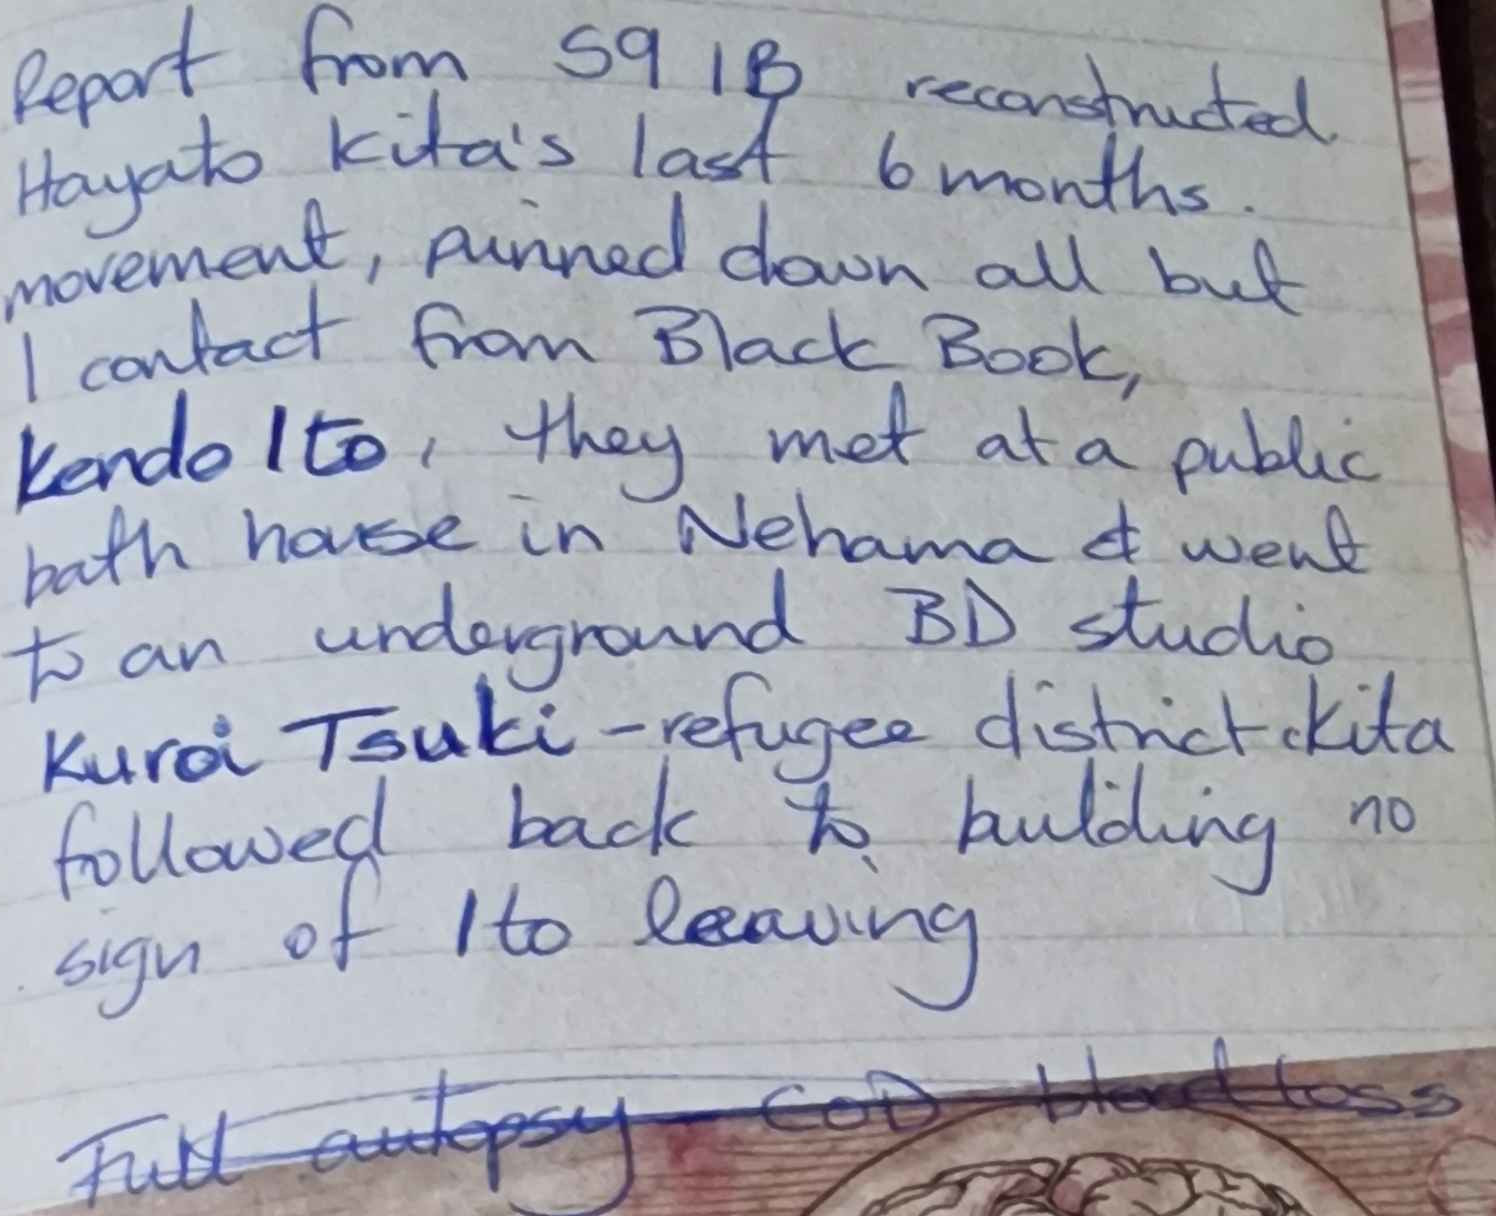 Report from S9 1B reconstructed
Hayato Kita's last 6 months.
movement, pinned down all but
1 contact from Black Book,
Kendo Ito, they met at a public
bath house in Nehama & went
to an underground BD studio
Kuroi Tsuki - refugee district. Kita
followed back to building no
sign of Ito leaving
Full autopsy COD blood loss